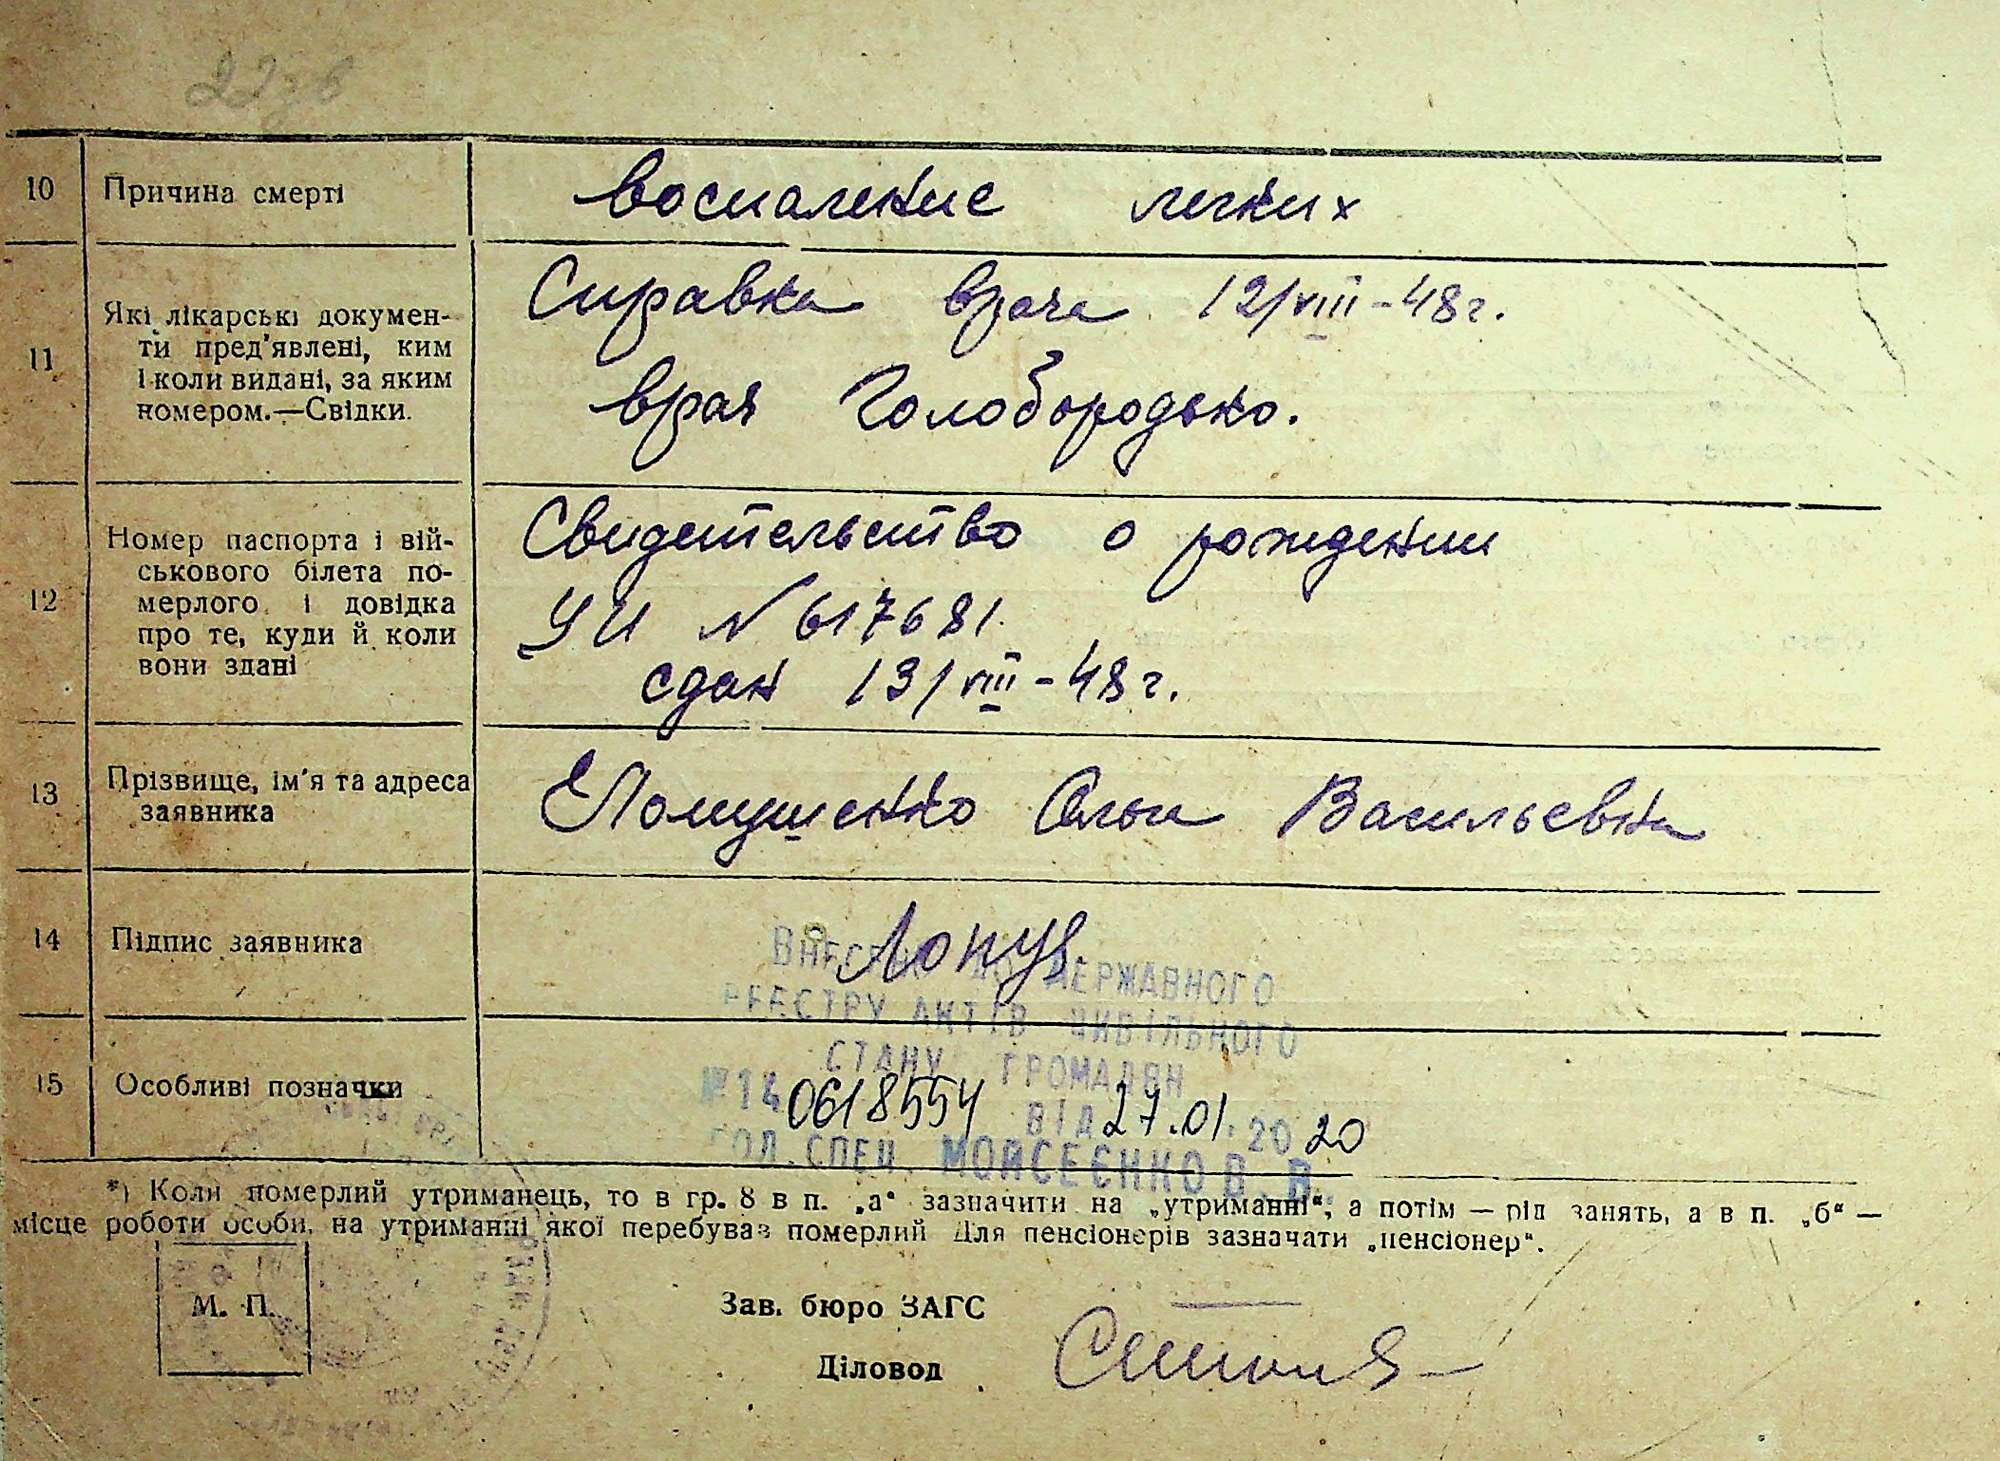 10 Причина смерті
воспаление легких
11 Які лікарські докумен-
ти пред'явлені, ким
і коли видані, за яким
номером.—Свідки.
Справка врача 12/VIII-48г.
врач Голобородько.
12 Номер паспорта і вій-
ськового білета по-
мерлого і довідка
про те, куди й коли
вони здані
Свидетельство о рождении
УИ N 617681.
сдан 13/VIII-48г.
13 Прізвище, ім'я та адреса
заявника
Ольга Васильевна
14 Підпис заявника
15 Особливі позначки
ВНЕСЕНО ДО ДЕРЖАВНОГО
РЕЄСТРУ АКТІВ ЦИВІЛЬНОГО
СТАНУ ГРОМАДЯН
№14 0618554 ВІД 27.01.2020
ГОЛ. СПЕЦ. МОЙСЕЄНКО В. В.
*) Коли померлий утриманець, то в гр. 8 в п. „а“ зазначити на „утриманні“, а потім — рід занять, а в п. „б“ —
місце роботи особи, на утриманні якої перебував померлий Для пенсіонерів зазначати „пенсіонер“.
М. П.
Зав. бюро ЗАГС
Діловод